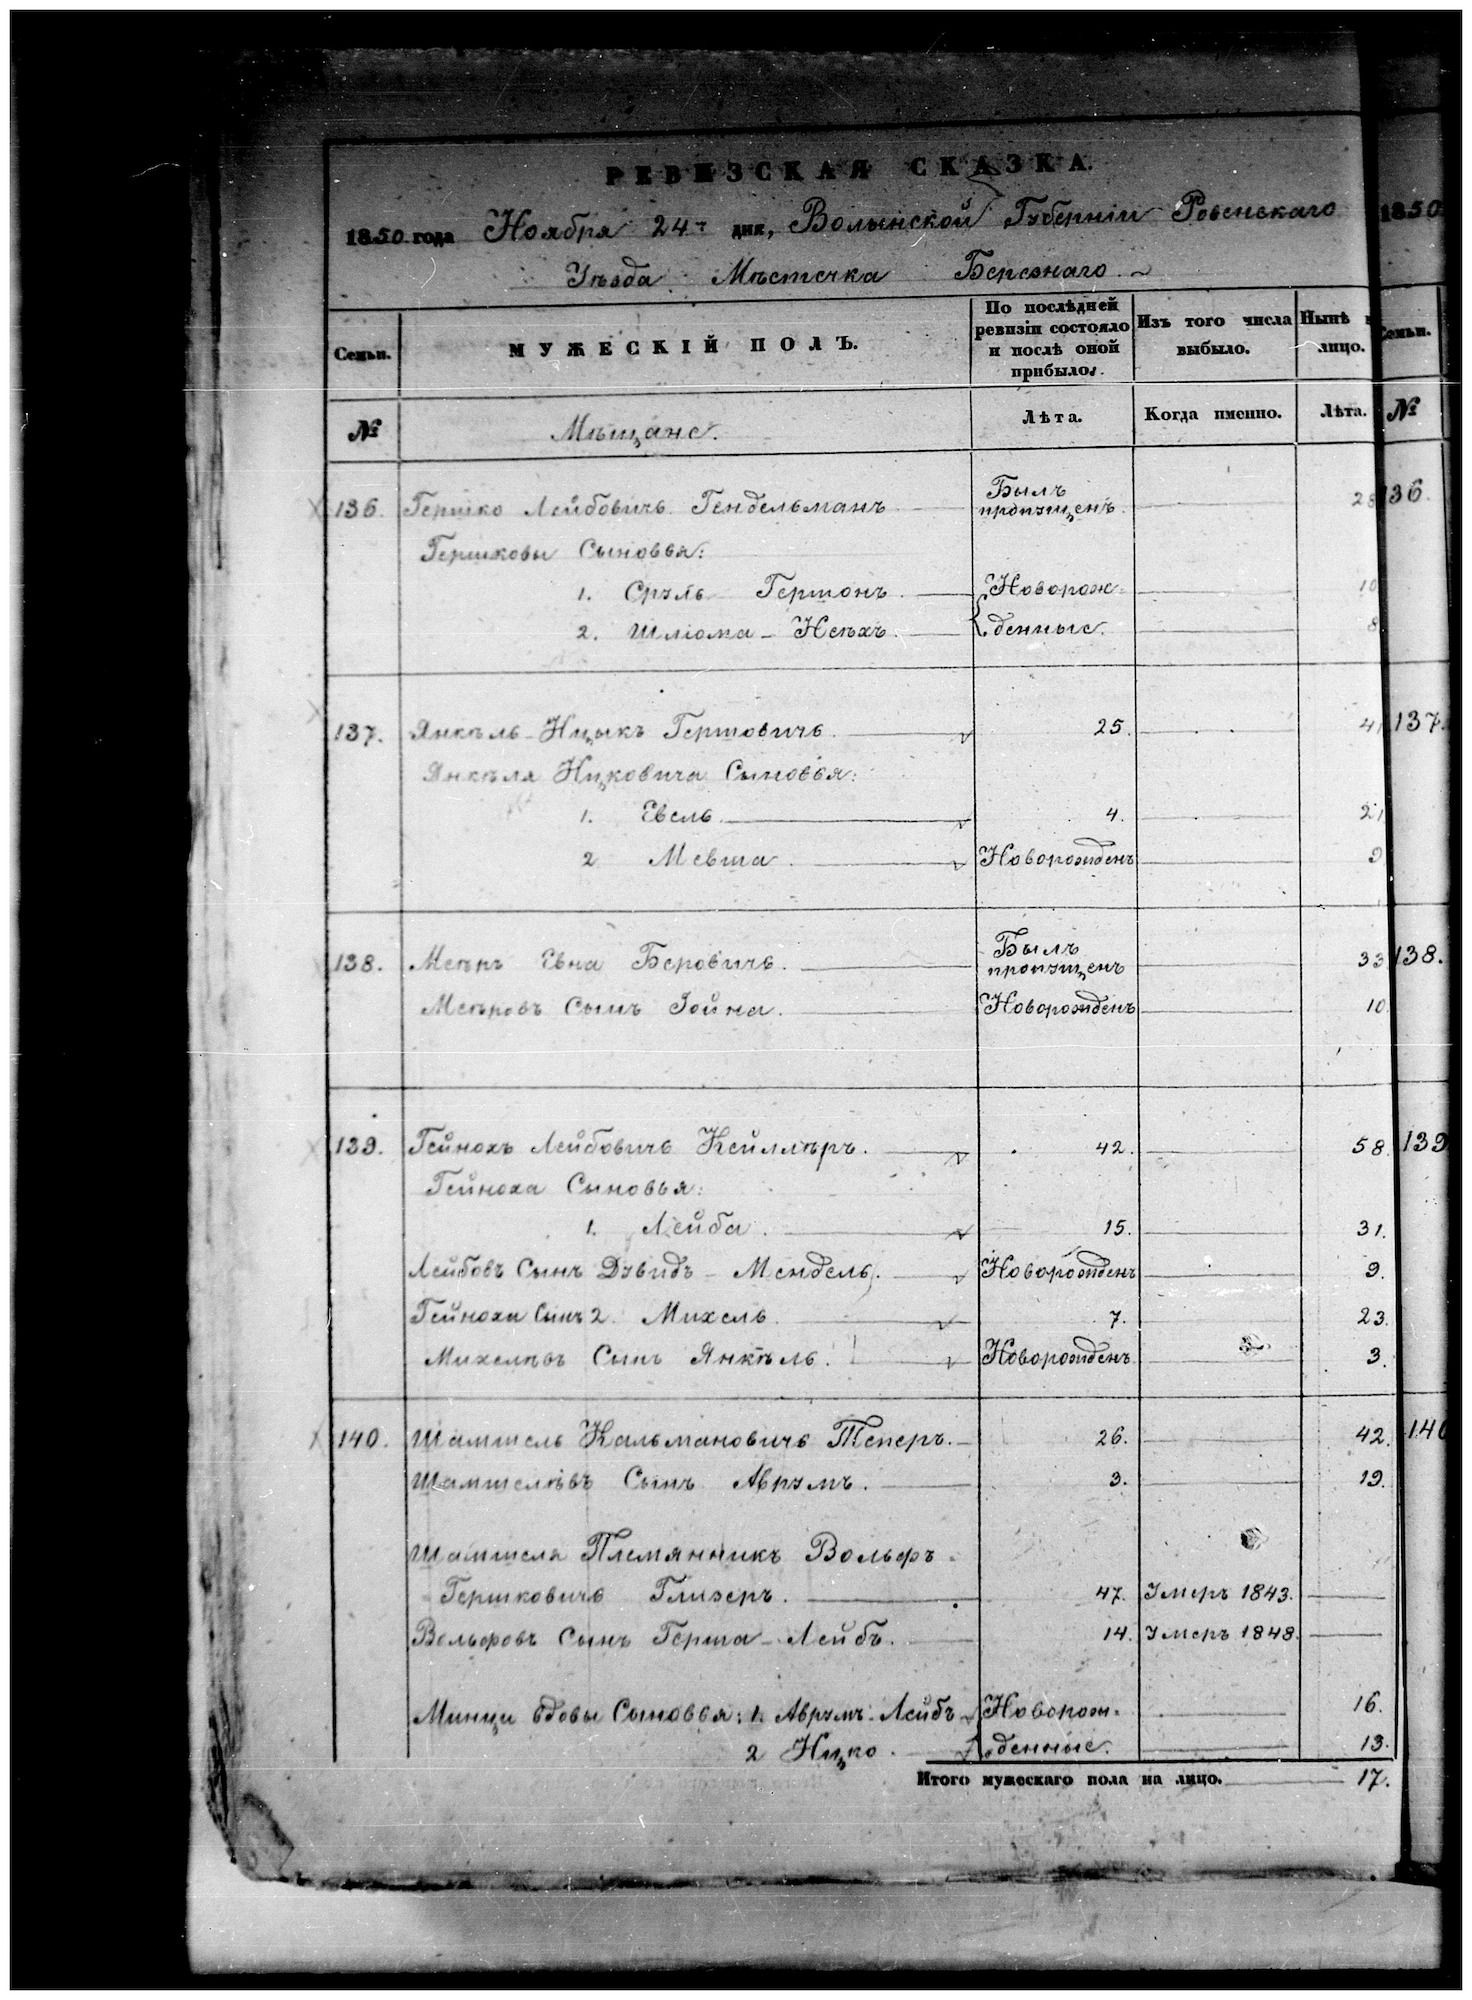 РЕВИЗСКАЯ СКАЗКА.
1850 года Ноября 24 дня, Волынской Губерніи Ровенскаго 1850
Уѣзда Мѣстечка Березнаго
Семьи. МУЖЕСКІЙ ПОЛЪ. По послѣдней ревизіи состояло и послѣ оной прибыло. Изъ того числа выбыло. Нынѣ лицо. Семьи.
№ Мѣщане. Лѣта. Когда именно. Лѣта. №
136. Гершко Лейбовичъ Гендельманъ Былъ пропущенъ 28 136.
Гершковы Сыновья:
1. Сруль Гершонъ Новорож- 10
2. Шлiома - денные. 8
137. Янкель-Ицыкъ Гершовичъ 25. 41 137.
Янкеля Ицковича Сыновья:
1. Евель 4. 21
2 Мевша Новорожденъ 9
138. Меръ Евна Беровичъ. Былъ пропущенъ 33 138.
Меровъ Сынъ Іойна. Новорожденъ 10
139. Гейнохъ Лейбовичъ Кейллеръ. 42. 58. 139
Гейноха Сыновья:
1. Лейба 15. 31.
Лейбовъ Сынъ Дувидъ - Мендель. Новорожденъ 9.
Гейноха Сынъ 2. Михель 7. 23.
Михелевъ Сынъ Янкель. Новорожденъ 3.
140. Шамшель Кальмановичъ Теперъ. 26. 42. 140
Шамшелевъ Сынъ Аврумъ. 3. 19.
Шамшеля Племянникъ Вольфъ
Гершковичъ Глизеръ. 47. Умеръ 1843.
Вольфовъ Сынъ Герша-Лейбъ. 14. Умеръ 1848.
Минци вдовы Сыновья: 1. Аврумъ-Лейбъ Новорож- 16.
2 Ицко денные. 13.
Итого мужескаго пола на лицо. 17.